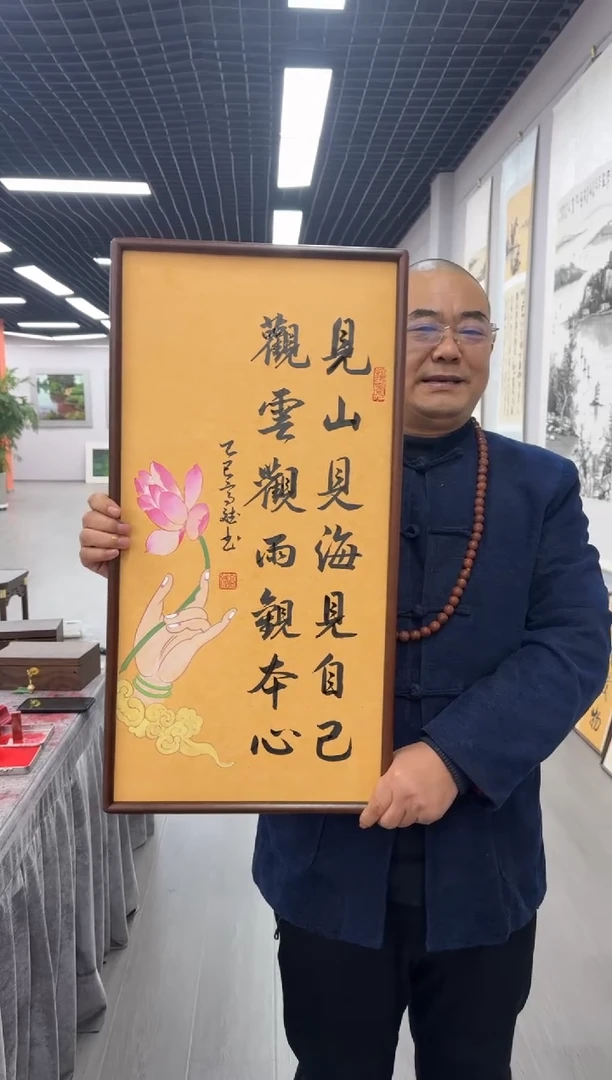 見山見海見自己
觀雲觀雨觀本心
乙巳
書